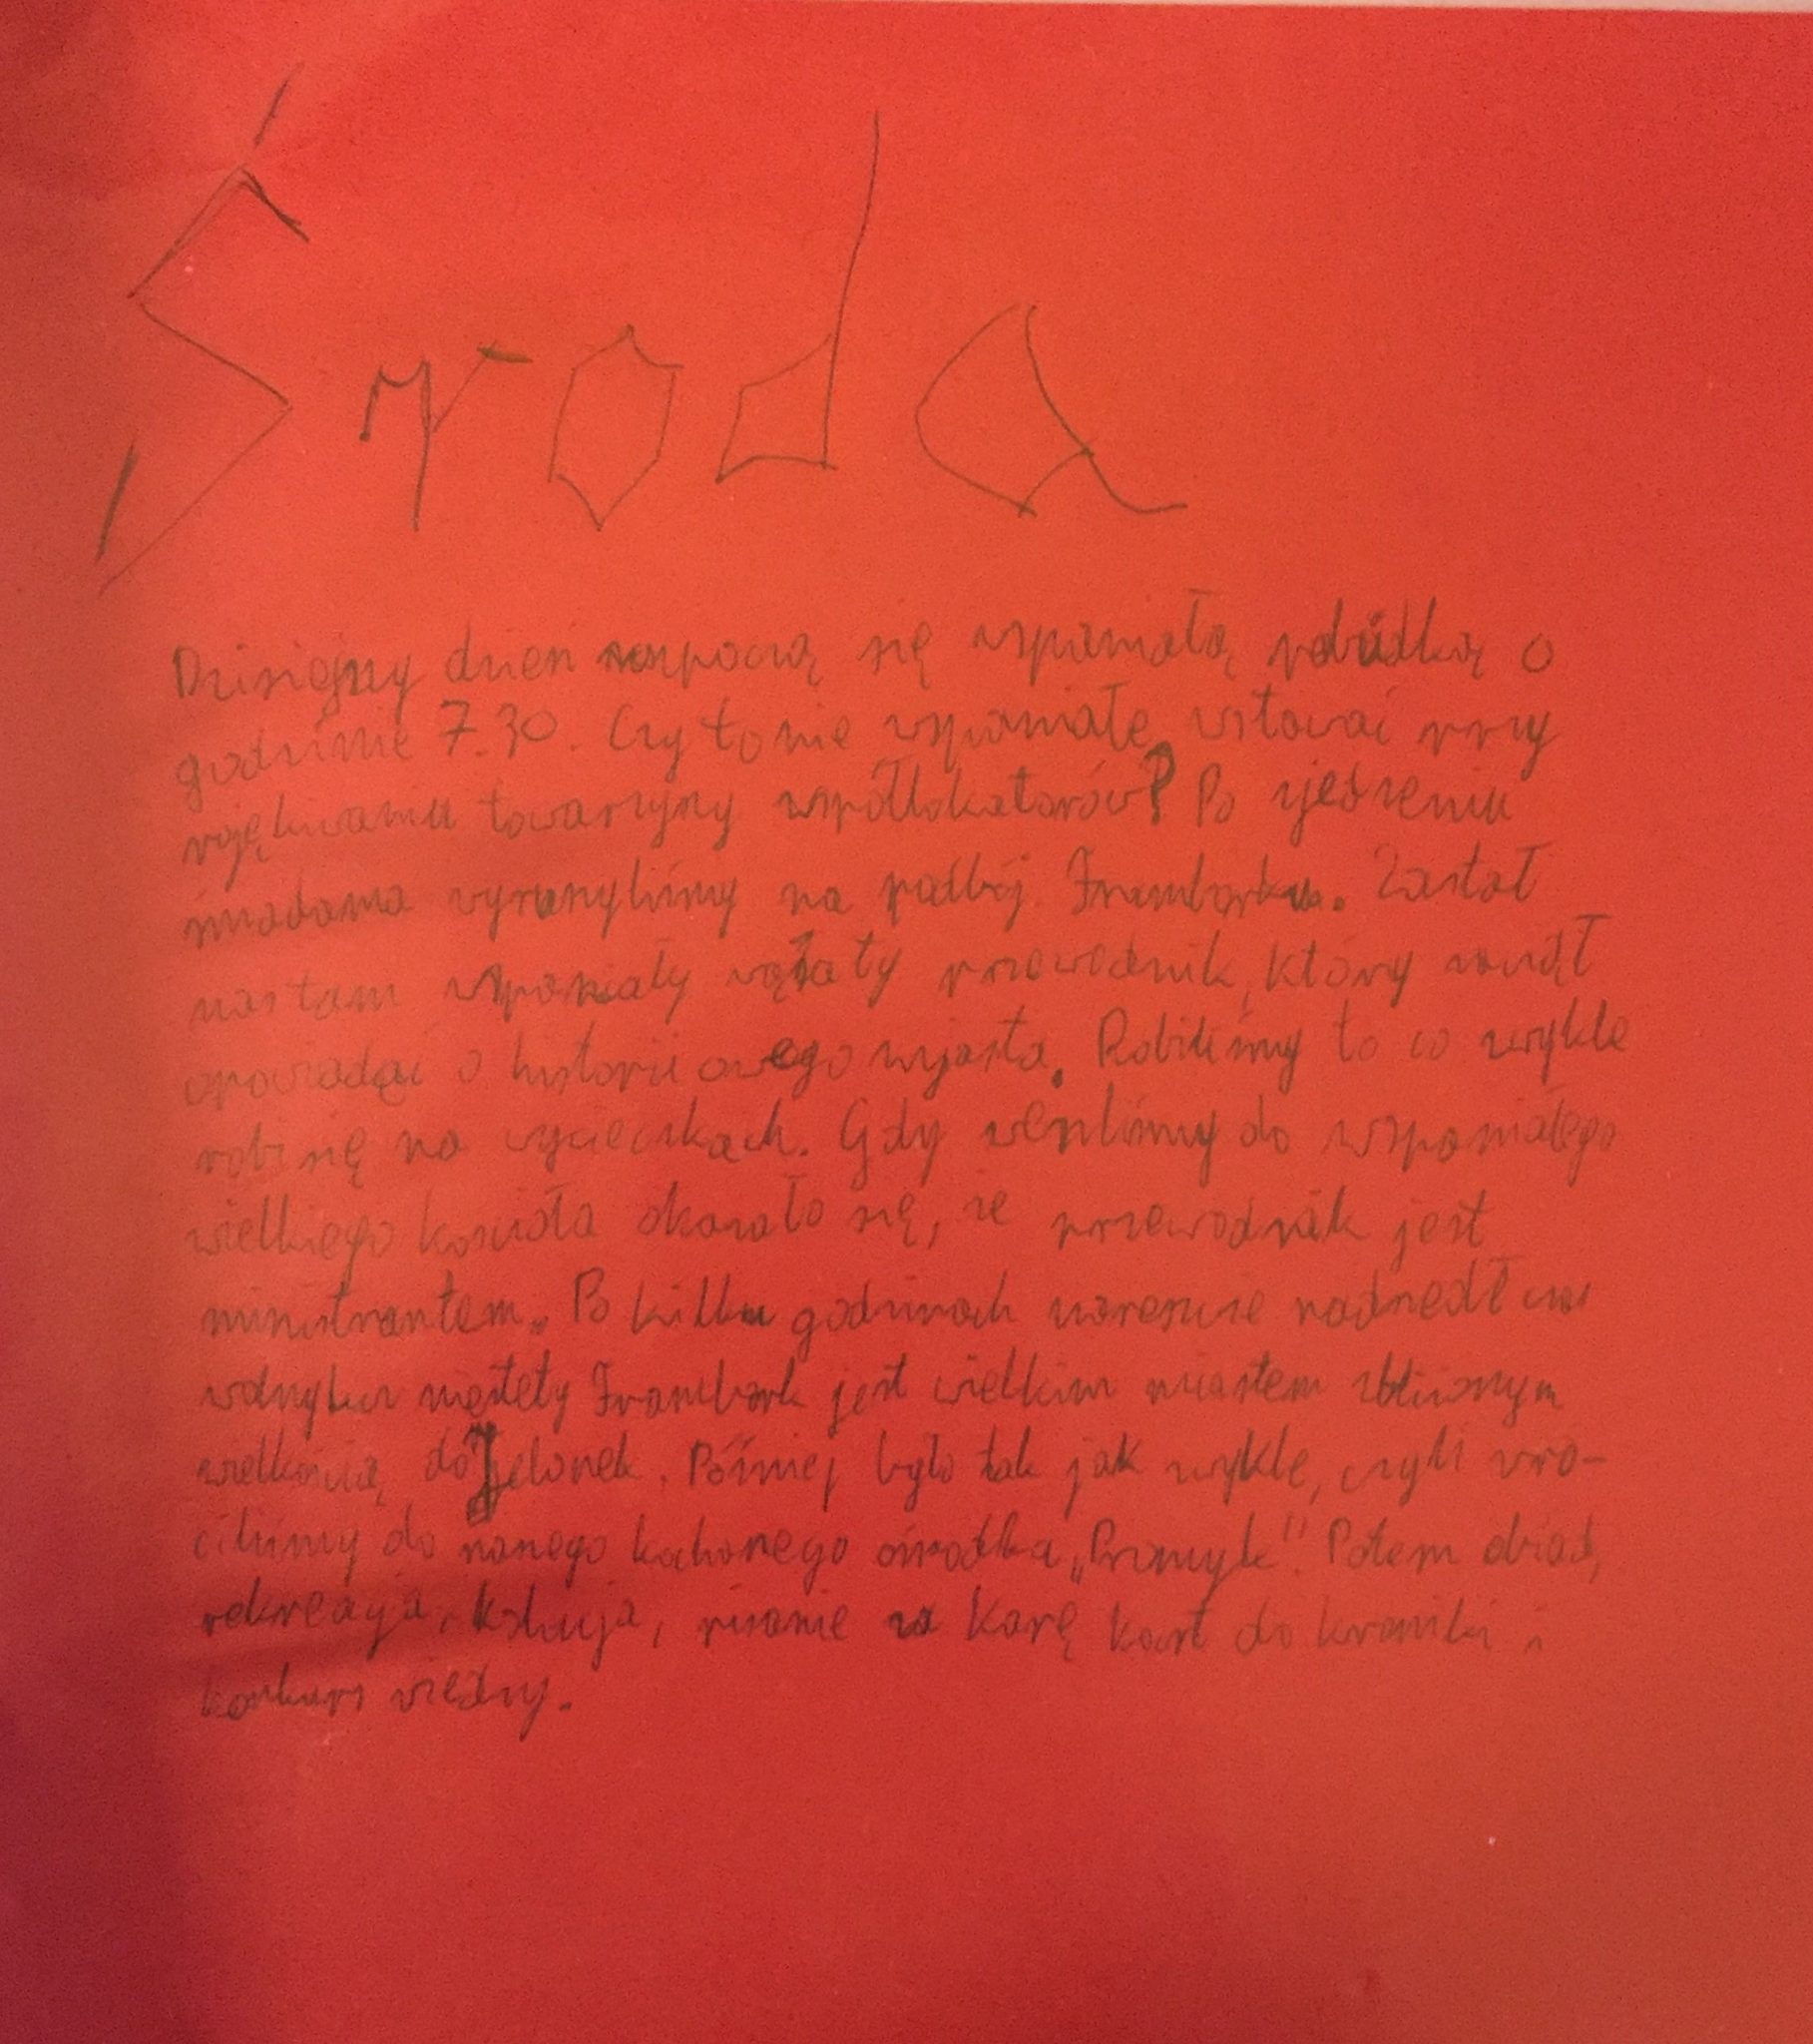 Środa
Dzisiejszy dzień rozpoczą się wspaniałą pobudką o
godzinie 7.30. Czy to nie wspaniałe wstawać przy
pojękiwaniu towarzyszy współlokatorów? Po zjedzeniu
śniadania wyruszyliśmy na podbój Fromborku. Zastał
nas tam wspaniały wąsaty przewodnik, który zaczął
opowiadać o historii owego miasta. Robiliśmy to co zwykle
robi się na wycieczkach. Gdy weszliśmy do wspaniałego
wielkiego kościoła okazało się, że przewodnik jest
ministrantem. Po kilku godzinach nareszcie nadszedł czas
niestety Frombork jest wielkim miastem zbliżonym
wielkością do Jelonek. Później było tak jak zwykle, czyli wró-
ciliśmy do naszego kochanego ośrodka „Promyk". Potem obiad,
rekreacja, kolacja, pisanie za karę kart do kroniki i
konkurs wiedzy.